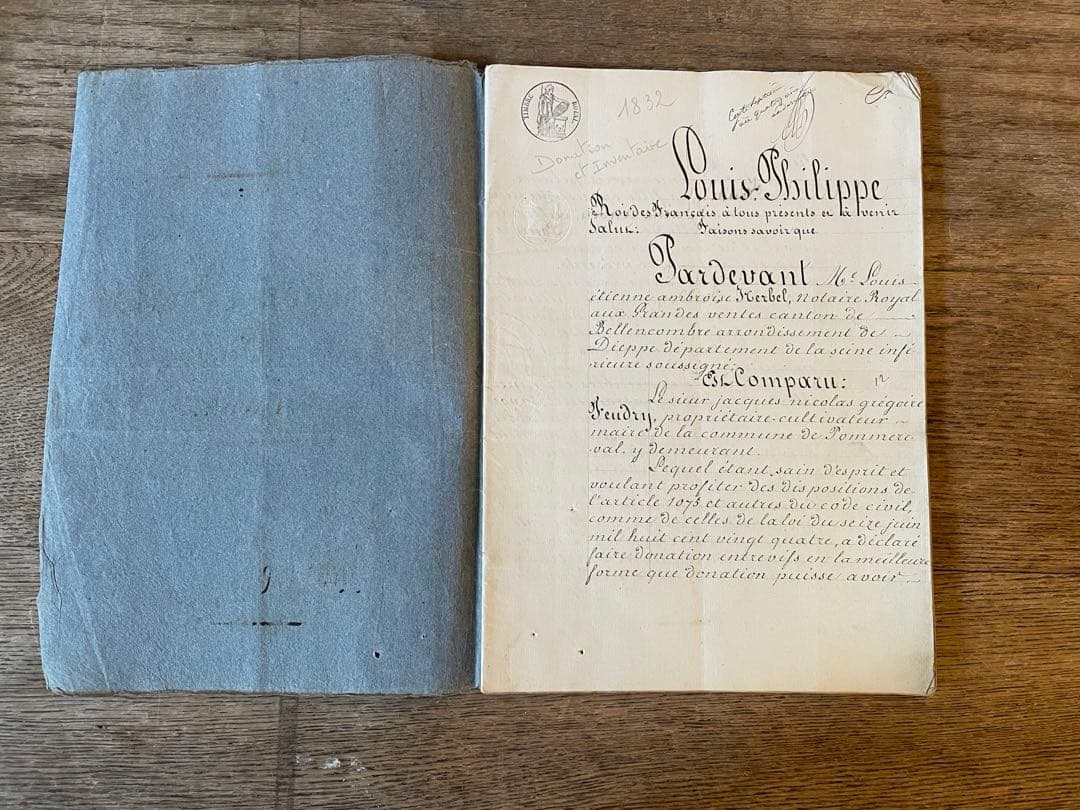 TIMBRE ROYAL
1832
Donation
et Inventaire
Louis-Philippe
Roi des Français à tous présents et à venir
Salut: Faisons savoir que
Pardevant Me Louis
étienne ambroise Herbel, Notaire Royal
aux Grandes ventes canton de
Bellencombre arrondissement de
Dieppe département de la seine infé
rieure soussigné;
Est Comparu:
Le sieur jacques nicolas grégoire
Feudry, propriétaire-cultivateur
maire de la commune de Pommere
val. y demeurant.
Lequel étant, sain d'esprit et
voulant profiter des dispositions de
l'article 1075 et autres du code civil,
comme de celles de la loi du seize juin
mil huit cent vingt quatre, a déclaré
faire donation entrevifs en la meilleure
forme que donation puisse avoir